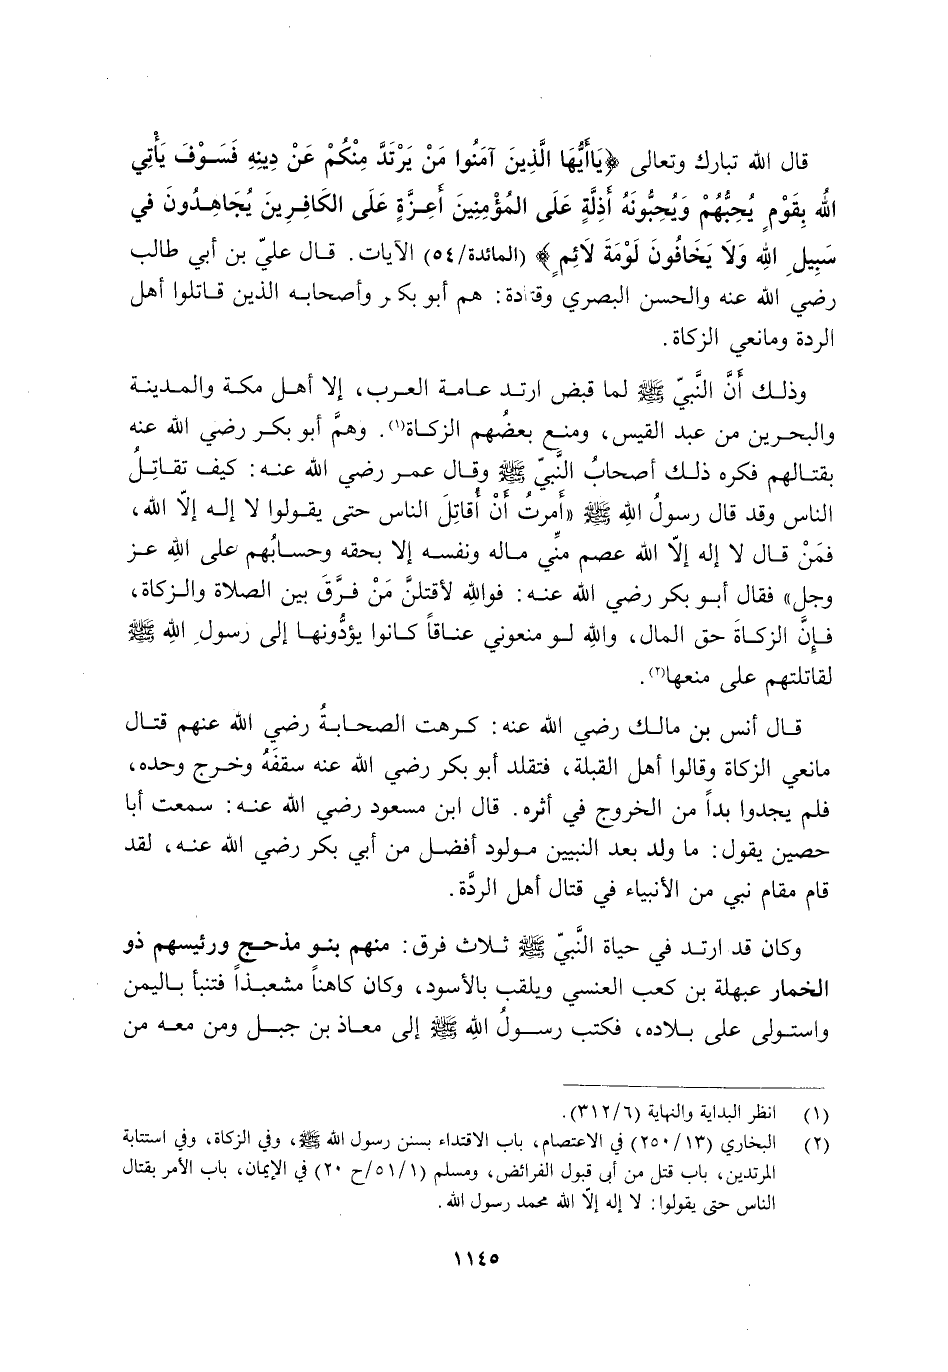 قال الله تبارك وتعالى ﴿يَاأَيُّهَا الَّذِينَ آمَنُوا مَنْ يَرْتَدَّ مِنْكُمْ عَنْ دِينِهِ فَسَوْفَ يَأْتِي
اللهُ بِقَوْمٍ يُحِبُّهُمْ وَيُحِبُّونَهُ أَذِلَّةٍ عَلَى المُؤْمِنِينَ أَعِزَّةٍ عَلَى الكَافِرِينَ يُجَاهِدُونَ في
سَبِيلِ اللهِ وَلَا يَخَافُونَ لَوْمَةَ لَائِمٍ﴾ (المائدة/٥٤) الآيات. قال عليّ بن أبي طالب
رضي الله عنه والحسن البصري وقتادة: هم أبو بكر وأصحابه الذين قاتلوا أهل
الردة ومانعي الزكاة.
وذلك أَنَّ النَّبيّ ﷺ لما قبض ارتد عامة العرب، إلا أهل مكة والمدينة
والبحرين من عبد القيس، ومنع بعضُهم الزكاة(١). وهمَّ أبو بكر رضي الله عنه
بقتالهم فكره ذلك أصحابُ النَّبيّ ﷺ وقال عمر رضي الله عنه: كيف تقاتِلُ
الناس وقد قال رسولُ الله ﷺ «أُمرتُ أَنْ أُقاتِلَ الناس حتى يقولوا لا إله إلاّ الله،
فمَنْ قال لا إله إلاّ الله عصم منِّي ماله ونفسه إلا بحقه وحسابُهم على اللهِ عز
وجل» فقال أبو بكر رضي الله عنه: فواللهِ لأقتلنَّ مَنْ فرَّقَ بين الصلاة والزكاة،
فإنَّ الزكاةَ حق المال، واللهِ لو منعوني عناقاً كانوا يؤدُّونها إلى رسولِ اللهِ ﷺ
لقاتلتهم على منعها(٢).
قال أنس بن مالك رضي الله عنه: كرهت الصحابةُ رضي الله عنهم قتال
مانعي الزكاة وقالوا أهل القبلة، فتقلد أبو بكر رضي الله عنه سقفَهُ وخرج وحده،
فلم يجدوا بداً من الخروج في أثره. قال ابن مسعود رضي الله عنه: سمعت أبا
حصين يقول: ما ولد بعد النبيين مولود أفضل من أبي بكر رضي الله عنه، لقد
قام مقام نبي من الأنبياء في قتال أهل الردَّة.
وكان قد ارتد في حياة النَّبيّ ﷺ ثلاث فرق: منهم بنو مذحج ورئيسهم ذو
الخمار عبهلة بن كعب العنسي ويلقب بالأسود، وكان كاهناً مشعبذاً فتنبأ باليمن
واستولى على بلاده، فكتب رسولُ اللهِ ﷺ إلى معاذ بن جبل ومن معه من
(١) انظر البداية والنهاية (٣١٢/٦).
(٢) البخاري (٢٥٠/١٣) في الاعتصام، باب الاقتداء بسنن رسول الله ﷺ، وفي الزكاة، وفي استتابة
المرتدين، باب قتل من أبى قبول الفرائض، ومسلم (٥١/١/ح ٢٠) في الإيمان، باب الأمر بقتال
الناس حتى يقولوا: لا إله إلاّ الله محمد رسول الله.
١١٤٥